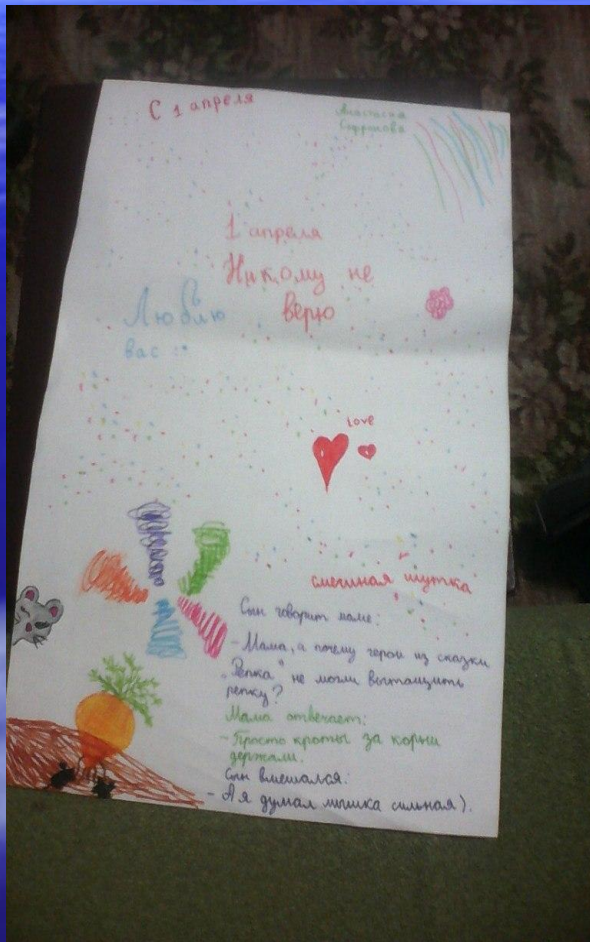 С 1 апреля
Анастасия
1 апреля
Никому не
верю
Люблю
вас :)
love
смешная шутка
Сын говорит маме:
- Мама, а почему герои из сказки
„Репка" не могли вытащить
репку?
Мама отвечает:
- Просто кроты за корни
держали.
Сын вмешался:
- А я думал мышка сильная).